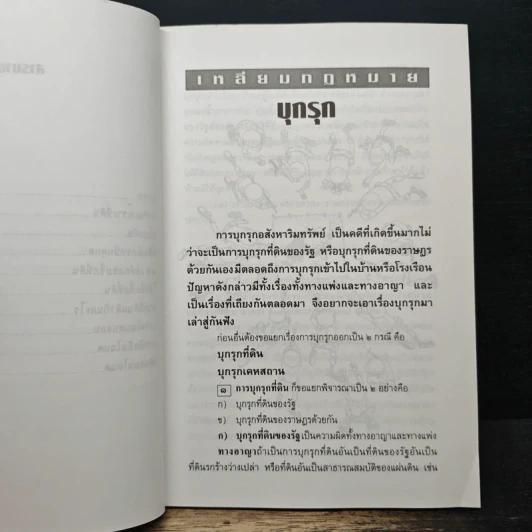 เหลี่ยมกฎหมาย
บุกรุก
การบุกรุกอสังหาริมทรัพย์ เป็นคดีที่เกิดขึ้นมากไม่
ว่าจะเป็นการบุกรุกที่ดินของรัฐ หรือบุกรุกที่ดินของราษฎร
ด้วยกันเองมีตลอดถึงการบุกรุกเข้าไปในบ้านหรือโรงเรือน
ปัญหาดังกล่าวมีทั้งเรื่องทั้งทางแพ่งและทางอาญา และ
เป็นเรื่องที่เถียงกันตลอดมา จึงอยากจะเอาเรื่องบุกรุกมา
เล่าสู่กันฟัง
ก่อนอื่นต้องขอแยกเรื่องการบุกรุกออกเป็น ๒ กรณี คือ
บุกรุกที่ดิน
บุกรุกเคหสถาน
๑ การบุกรุกที่ดิน ก็ขอแยกพิจารณาเป็น ๒ อย่างคือ
ก) บุกรุกที่ดินของรัฐ
ข) บุกรุกที่ดินของราษฎรด้วยกัน
ก) บุกรุกที่ดินของรัฐเป็นความผิดทั้งทางอาญาและทางแพ่ง
ทางอาญาถ้าเป็นการบุกรุกที่ดินอันเป็นที่ดินของรัฐอันเป็น
ที่ดินรกร้างว่างเปล่า หรือที่ดินอันเป็นสาธารณสมบัติของแผ่นดิน เช่น